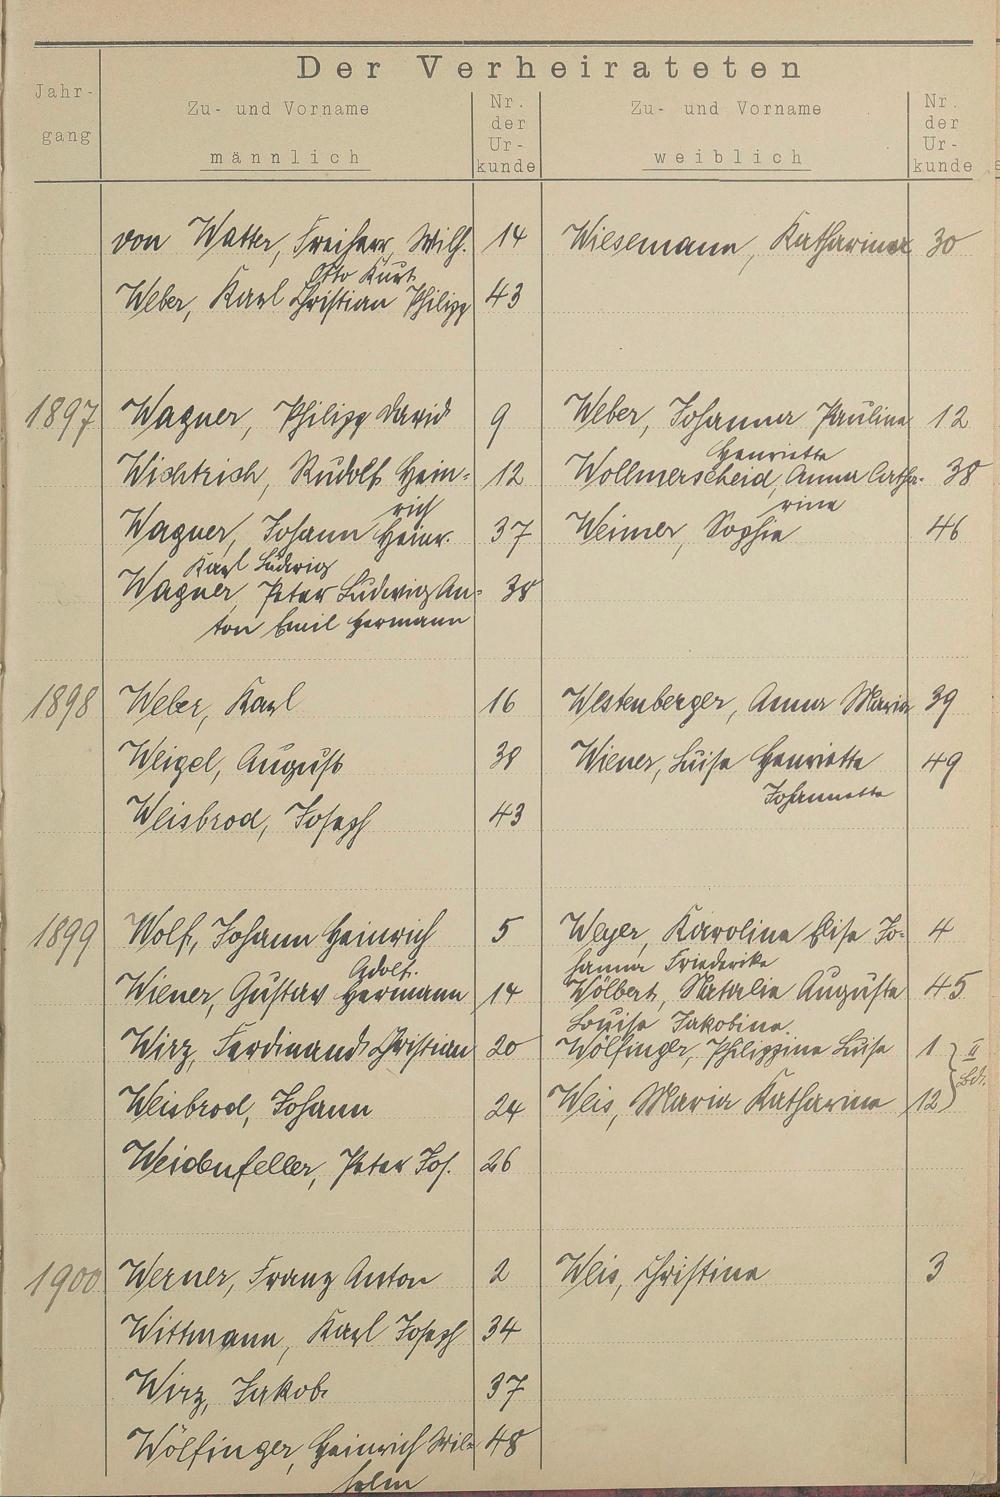 Der Verheirateten
Jahr-
gang
Zu- und Vorname
männlich
Nr.
der
Ur-
kunde
Zu- und Vorname
weiblich
Nr.
der
Ur-
kunde
von Watter, Freiherr, Wilh. 14 Wiesemann, Katharina 30
Otto Kurt
Weber, Karl Christian Philipp 43
1897 Wagner, Philipp David 9 Weber, Johanna Pauline 12
Henriette
Wichtrich, Rudolf Hein- 12 Wollmerscheid, Anna Catha- 38
rich rine
Wagner, Johann Heinr. 37 Weimer, Sophie 46
Karl Ludwig
Wagner, Peter Ludwig An- 38
ton Emil Hermann
1898 Weber, Karl 16 Westenberger, Anna Maria 39
Weigel, August 38 Wiener, Luise Henriette 49
Johannette
Weisbrod, Joseph 43
1899 Wolf, Johann Heinrich 5 Weyer, Karoline Elise Jo- 4
Adolf. hanna Friederike
Wiener, Gustav Hermann 14 Wölbert, Natalie Auguste 45
Louise Jakobine.
Wirz, Ferdinand Christian 20 Wölfinger, Philippine Luise 1 II
Weisbrod, Johann 24 Weis, Maria Katharina 12 Bd.
Weidenfeller, Peter Jos. 26
1900 Werner, Franz Anton 2 Weis, Christine 3
Wittmann, Karl Joseph 34
Wirz, Jakob 37
Wölfinger, Heinrich Wil- 48
helm